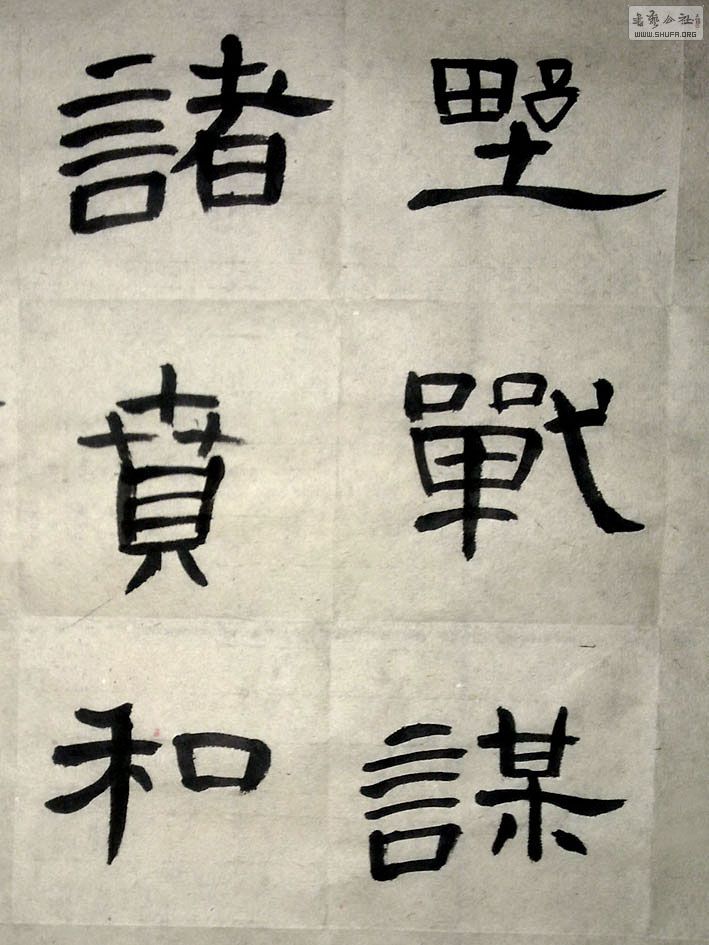 野戰謀
諸賁和
書藝公社
WWW.SHUFA.ORG